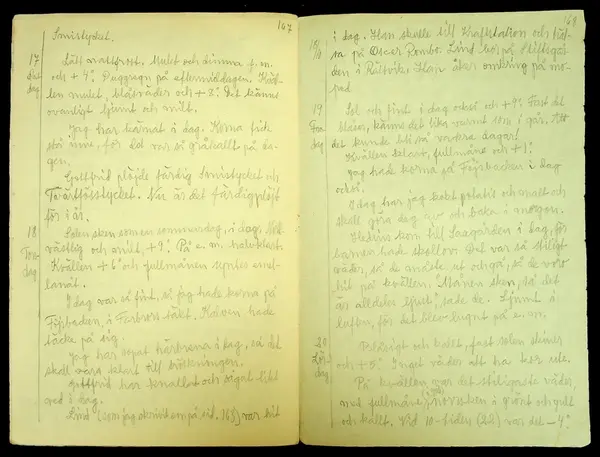 167
Smistycket.
17
Ons
dag
Lätt nattfrost. Mulet och dimma f.m.
och + 4°. Duggregn på eftermiddagen. Kväl-
len mulet, blåsväder och + 8°. Det kännes
ovanligt ljumt och milt.
Jag har kärnat i dag. Korna fick
stå inne, för det var så gråkallt på da-
gen.
Gottfrid plöjde färdig Smistycket och
Tvärtföstycket. Nu är det färdigplöjt
för i år.
18
Tors
dag
Solen sken som en sommardag, i dag.
västlig och milt, + 9°. På e.m. halvklart.
Kvällen + 6° och fullmånen syntes emel-
lanåt.
I dag var så fint, så jag hade korna på
Föjsbacken, i Farbrors täkt. Kalven hade
täcke på sig.
Jag har sopat härbrena i dag, så det
skall vara klart till bökningen.
Gottfrid har knallat och sågat litet
ved i dag.
Lind (som jag skrivit om på sid. 165) var hit
168
i dag. Han skulle till Kraftstation och häl-
sa på Oscar Rombo. Lind bor på Stiftsgår-
den i Rättvik. Han åker omkring på mo-
ped.
19
Fre
dag
Sol och fint i dag också och + 9°. Fast det
blåser, kännes det lika varmt som i går. Att
det kunde bli så vackra dagar!
Kvällen klar, fullmåne och + 1°.
Jag hade korna på Föjsbacken i dag
också.
I dag har jag kokt potatis och malt och
skall göra deg av och baka i morgon.
kom till Laagården i dag, för
barnen hade skollov. Det var så stiligt
väder, så de måste ut och gå, så de voro
hit på kvällen. Månen sken, så det
är alldeles ljust, sade de. Ljumt i
luften, för det blev lugnt på e.m.
20
Lör
dag
Blåsigt och kallt, fast solen skiner
och + 5°. Inget väder att ha kor ute.
På kvällen var det stiligaste väder,
med fullmåne, norrsken i grönt och gult
och kallt. Vid 10-tiden (22) var det - 4°.